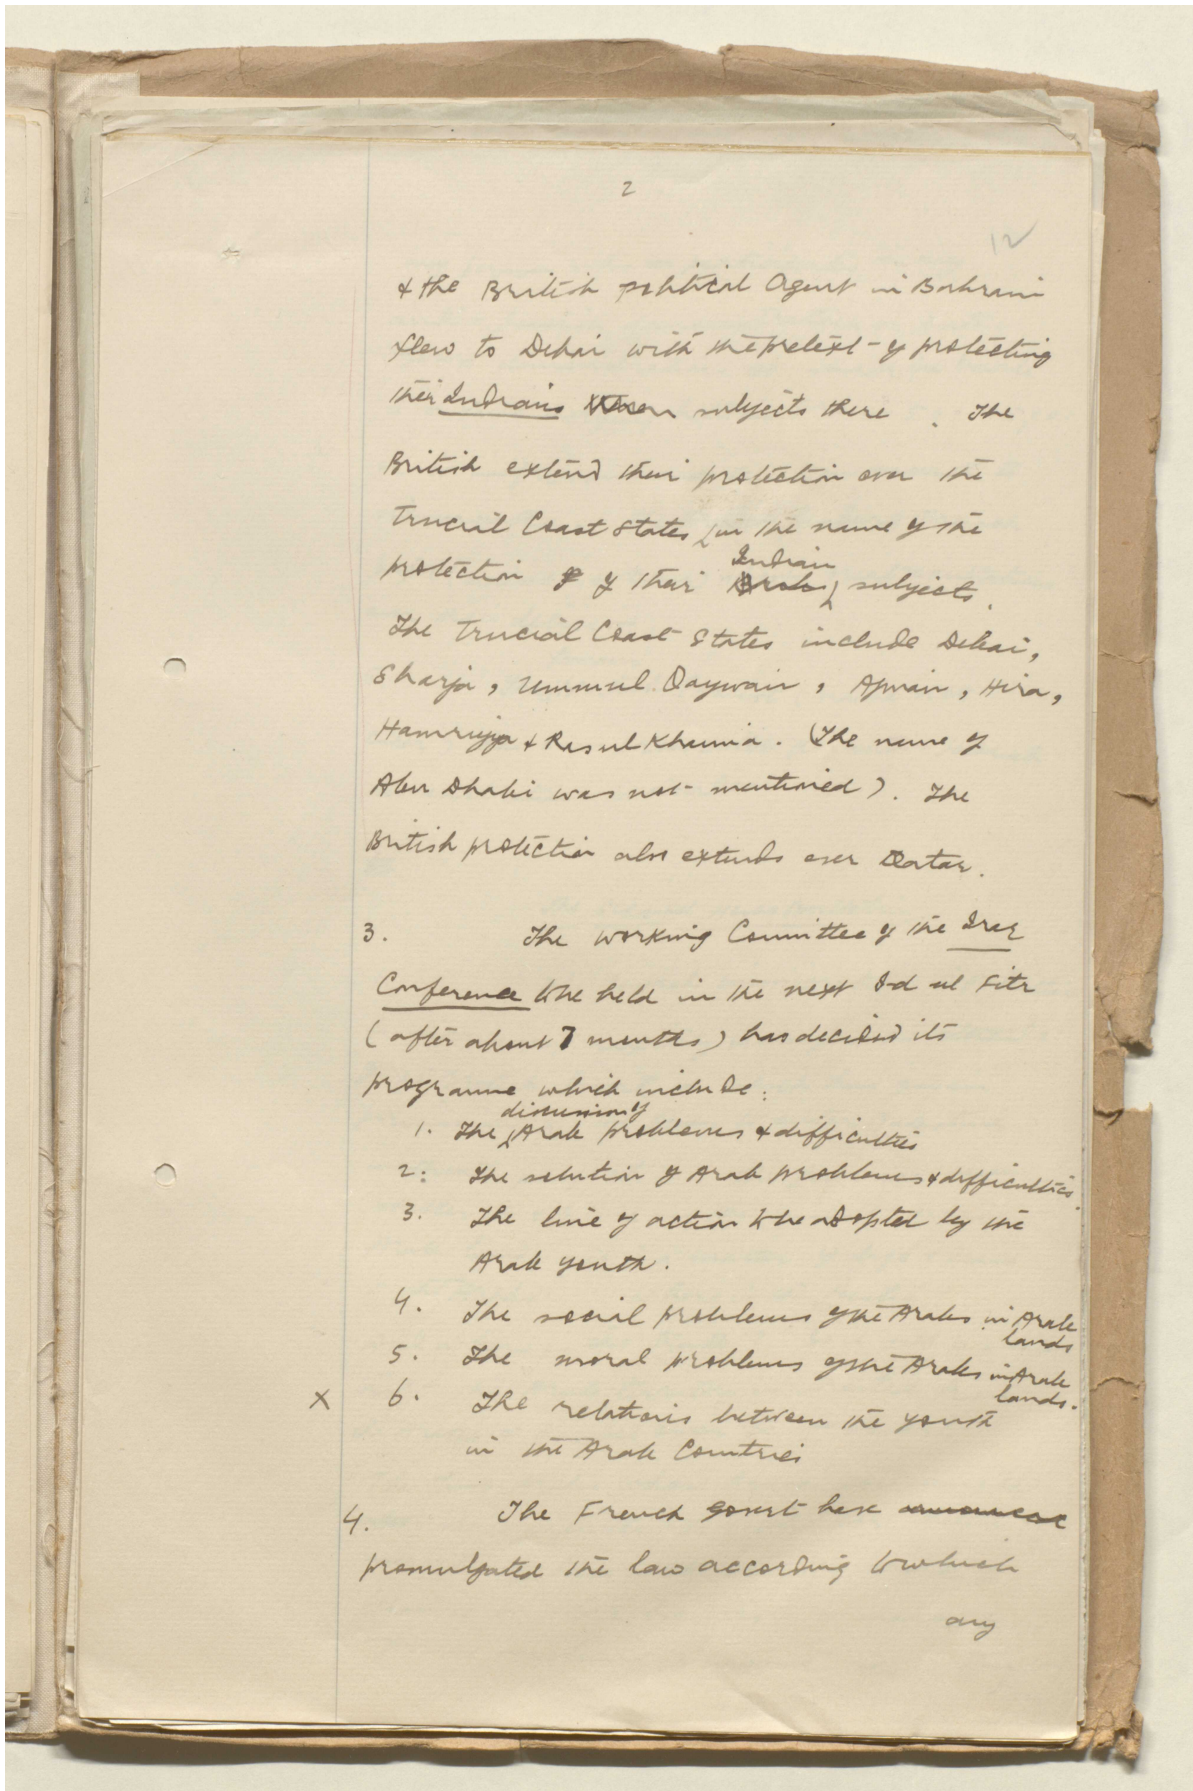 2
12
& the British political Agent in Bahrain
flew to Debai with the pretext of protecting
their Indians subjects there. The
British extend their protection over the
Trucial Coast States, in the name of the
Indian
protection of their Arabs subjects.
The Trucial Coast States include Debai,
Sharja, Ummul Qaywain, Ajman, Hira,
Hamriyya & Rasul Khaima. (The name of
Abu Dhabi was not mentioned). The
British protection also extends over Qatar.
3. The working Committee of the Iraq
Conference to be held in the next Id ul Fitr
(after about 7 months) has decided its
programme which include:
discussion of
1. The Arab problems & difficulties
2: The solution of Arab problems & difficulties.
3. The line of action to be adopted by the
Arab youth.
4. The social problems of the Arabs in Arab
lands
5. The moral problems of the Arabs in Arab
lands.
x 6. The relations between the youth
in the Arab Countries
4. The French Govert have
promulgated the law according to which
any